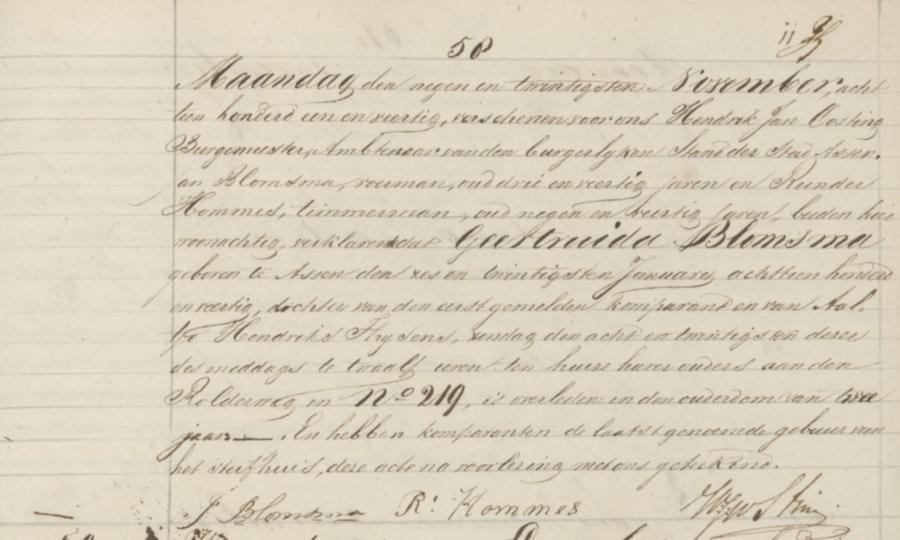 58
Maandag den negen en twintigsten November, acht
tien honderd een en veertig, verschenen voor ons Hendrik Jan Oosting
Burgemeester, Ambtenaar van den burgerlyken Stand der Stad Assen.
an Blomsma, voerman, oud drie en veertig jaren en Reinder
Hommes, timmerman, oud negen en veertig jaren, beiden hier
woonachtig, verklarende dat Geertruida Blomsma
geboren te Assen den zes en twintigsten January achttien honderd
en veertig, dochter van den eerstgemelden komparand en van Aal-
tje Hendriks Thysens, zondag den acht en twintigsten dezer
des middags te twaalf uren ten huize harer ouders aan den
Rolderweg in No 219, is overleden in den ouderdom van twee
jaar. En hebben komparanten de laatstgenoemde gebuur van
het sterfhuis, deze acte na voorlezing met ons getekend.
J Blomsma R: Hommes